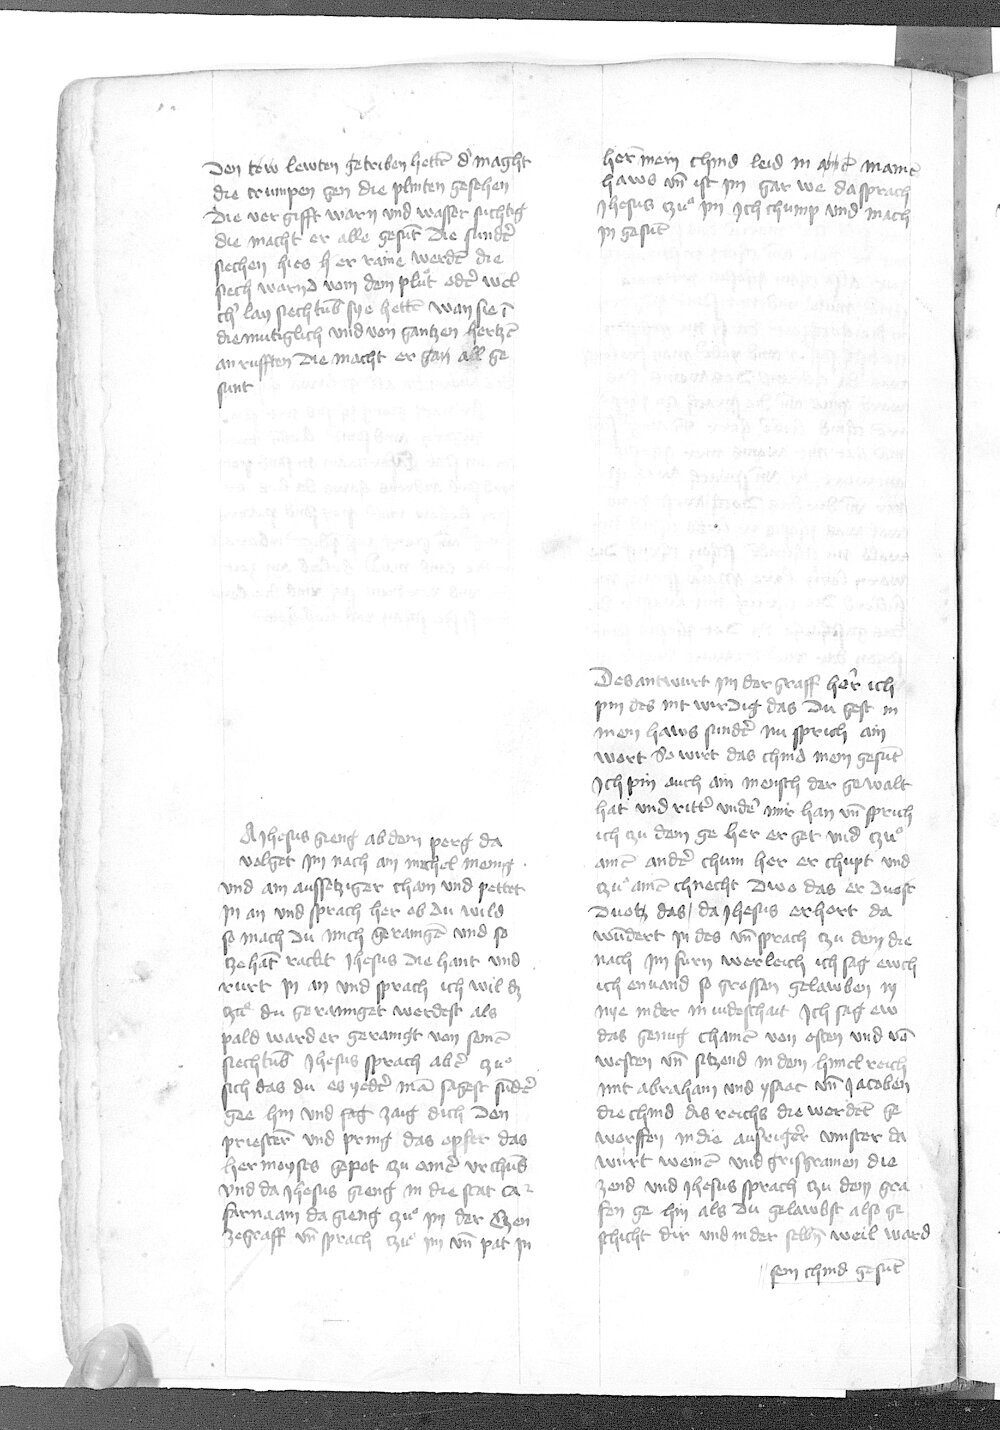 Den tew lewten getriben hettē d' maght
die crumpen gen die plinten gesehen
Die vergifft warn vnd wasser suchtig
die macht er alle gesūt Die sundr̄
siechen hies h er raine werdē die
siech warnd vom dem plůt odr̄ wel
ch' lay siechtūb sye hettē wan sie ī
diemutiglich vnd von gantzen hertzē
an rufften Die macht er gan all ge
sunt
A Jhesus gieng ab dem perg da
volget im nach ain michel menig
vnd ain aussetziger cham vnd pettet
in an vnd sprach her ob du wild
so mach du mich gerainigē vnd so
zehāt rackt Jhesus die hant vnd
rurt in an vnd sprach ich wil dz
du gerainiget werdest als
pald ward er geraingt von seinē
siechtūb Jhesus sprach abr̄ czu°
sich das du es yedr̄ mā sagest sūdr̄
gee hin vnd sag zaig dich den
priestern̄ vnd pring das opfer das
her moyses gepot czu ainr̄ vrchūd
vnd da Jhesus gieng in die stat ca
farnaam da gieng czu° im der Czen
zegraff vn̄ sprach czu° im vn̄ pat in
her mein chind leid in mainē
haws vn̄ ist im gar we da sprach
Jhesus czu° im Ich chump vnd mach
in gesūt
Des antwurt im der graff her̄ ich
pin des nit wirdig das du gest in
mein haws sundr̄ nu sprich ain
wort So wirt das chind mein gesūt
Ich pin auch ain mensch der gewalt
hat vnd rittr̄ vndr̄ mir han vn̄ sprich
ich zu dem ge her er get vnd czu°
ainē andr̄ chum her er chupt vnd
czu° ainē chnecht dwo das er duost
Duotz das / da Jhesus erhort da
wūdert in des vn̄ sprach czu den die
nach im furn werleich ich sag ewch
ich en vand so grossen gelawben ny
nye in der in iudeschait Ich sag ew
das genug chamē von osten vnd vō
westen vn̄ sitzend in dem himelreich
mit abraham vnd ysaac vn̄ Jacoben
die chind dis reichs die werdēt ge
worffen in die ausrigr̄ vinster da
wirt weinē vnd grisgramen die
zend vnd Jhesus sprach czu dem gra
fen ge hin als du gelawbst also ge
schicht dir vnd in der selbn̄ weil ward
sein chind gesūt